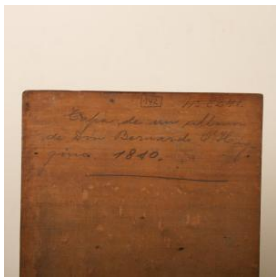 142
Tapa de un album
de don Bernardo O'Hi
gins 1810.